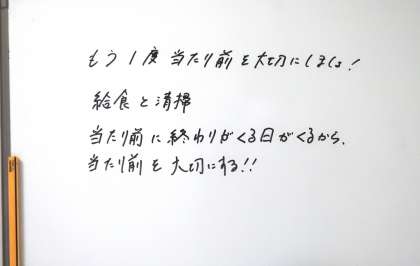 もう1度当たり前を大切にしましょ!
給食と清掃
当たり前に終わりがくる日がくるから、
当たり前を大切にする!!